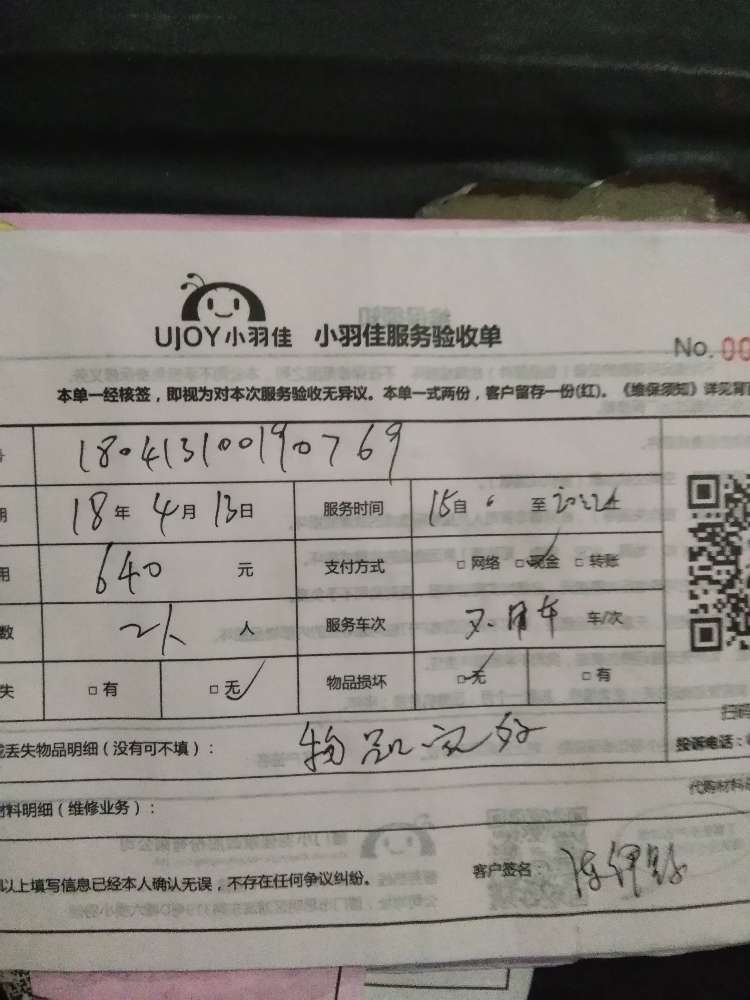 UJOY小羽佳 小羽佳服务验收单
No. 00
本单一经核签，即视为对本次服务验收无异议。本单一式两份，客户留存一份(红)。《维保须知》详见背面
18041310190769
期 18年 4月 13日 服务时间 15自 至
用 640 元 支付方式 □网络 □现金 □转账
数 2人 人 服务车次 不用车 车/次
失 □有 □无 物品损坏 □无 □有
扫码
丢失物品明细（没有可不填）： 物品完好
投诉电话：
代购材料
材料明细（维修业务）：
以上填写信息已经本人确认无误，不存在任何争议纠纷。 客户签名：